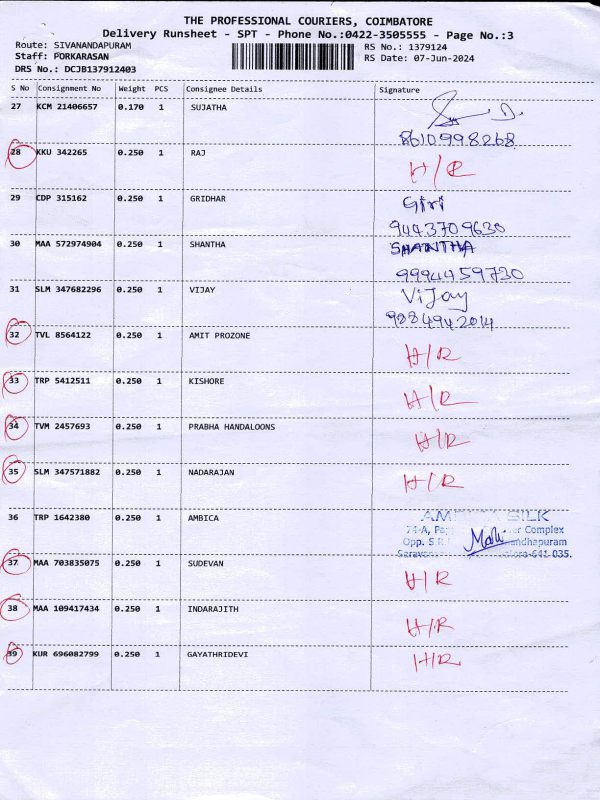 THE PROFESSIONAL COURIERS, COIMBATORE
Delivery Runsheet - SPT - Phone No.:0422-3505555 - Page No.:3
Route: SIVANANDAPURAM RS No.: 1379124
Staff: PORKARASAN RS Date: 07-Jun-2024
DRS No.: DCJB137912403
S No Consignment No Weight PCS Consignee Details Signature
27 KCM 21406657 0.170 1 SUJATHA
8610998268
28 KKU 342265 0.250 1 RAJ H/R
29 CDP 315162 0.250 1 GRIDHAR Giri
9443709630
30 MAA 572974904 0.250 1 SHANTHA SHANTHA
9994459730
31 SLM 347682296 0.250 1 VIJAY Vijay
9884942014
32 TVL 8564122 0.250 1 AMIT PROZONE H/R
33 TRP 5412511 0.250 1 KISHORE H/R
34 TVM 2457693 0.250 1 PRABHA HANDALOONS H/R
35 SLM 347571882 0.250 1 NADARAJAN H/R
36 TRP 1642380 0.250 1 AMBICA SILK
74-A, Complex
Opp. S.R.
641 035.
37 MAA 703835075 0.250 1 SUDEVAN H/R
38 MAA 109417434 0.250 1 INDARAJITH H/R
39 KUR 696082799 0.250 1 GAYATHRIDEVI H/R